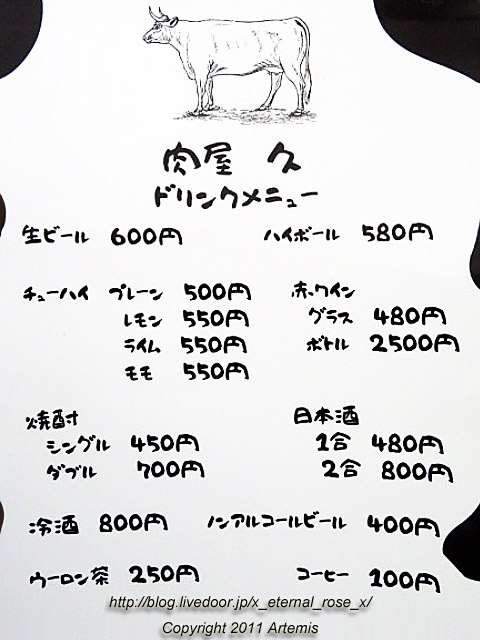 肉屋 久
ドリンクメニュー
生ビール 600円 ハイボール 580円
チューハイ プレーン 500円
レモン 550円
ライム 550円
モモ 550円
赤ワイン
グラス 480円
ボトル 2500円
焼酎
シングル 450円
ダブル 700円
日本酒
1合 480円
2合 800円
冷酒 800円 ノンアルコールビール 400円
ウーロン茶 250円 コーヒー 100円
http://blog.livedoor.jp/x_eternal_rose_x/
Copyright 2011 Artemis